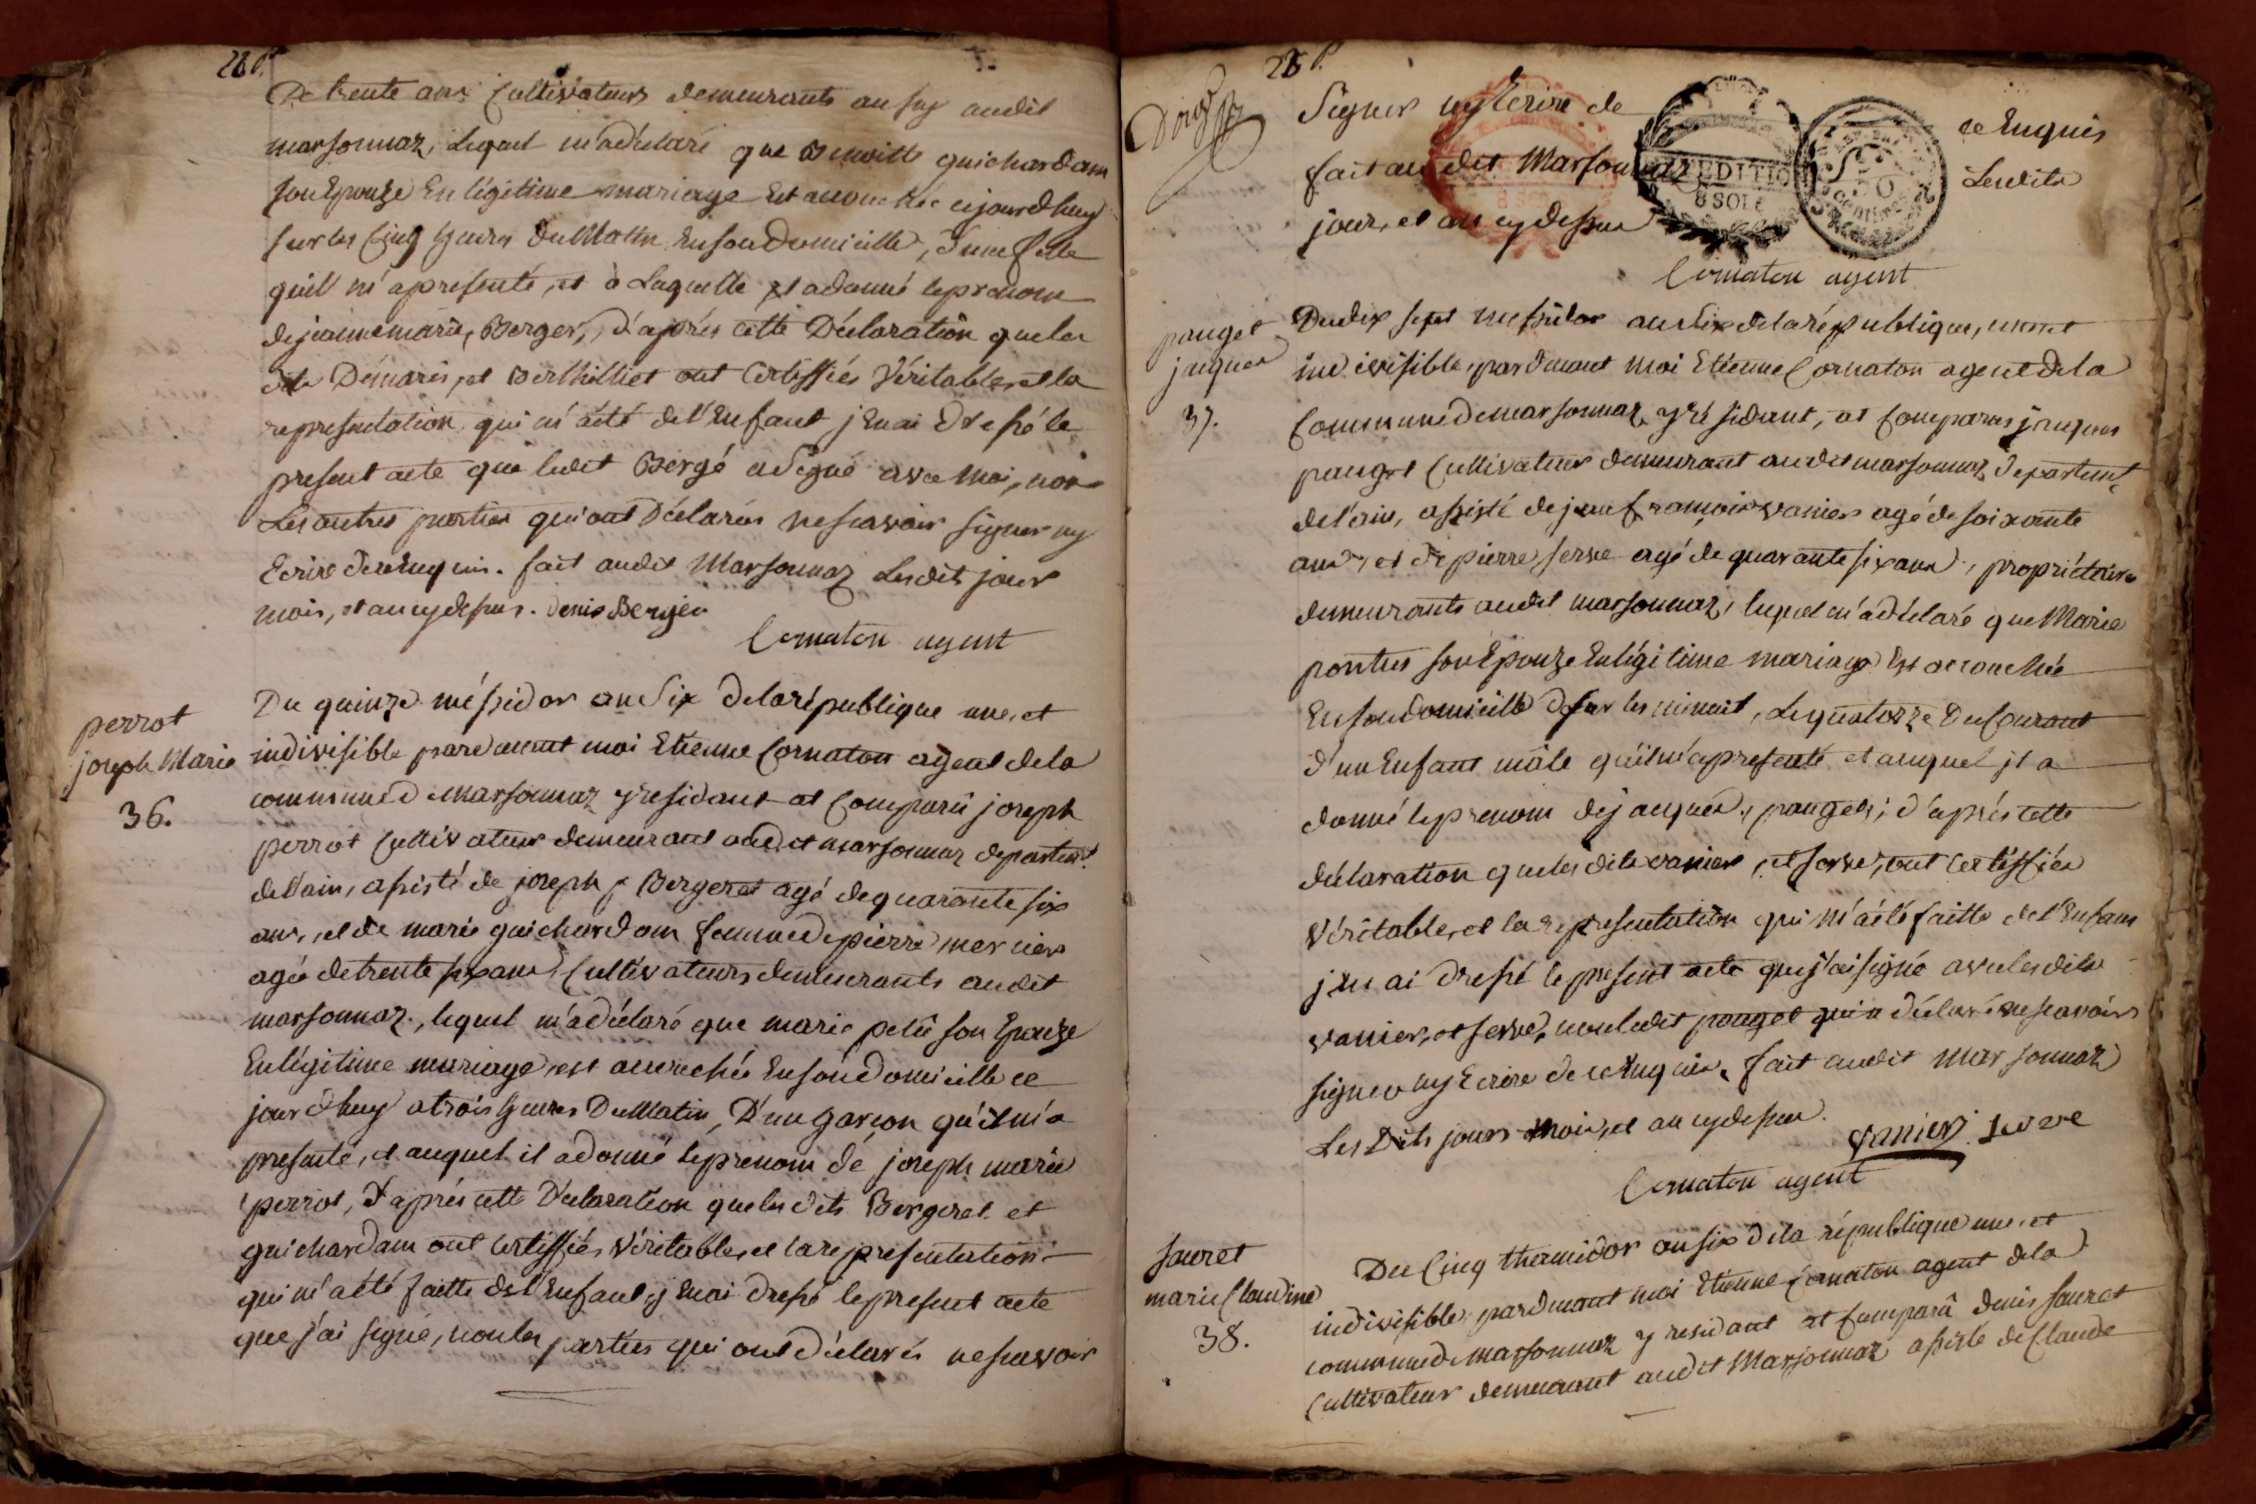 De trente ans Cultivateurs demeurants au susy audit
marsonnaz, Lequel m'a déclaré que Benoitte guichardam
son Epouze En légitime mariage Est accouchée ce jourdhuy
sur les Cinq heures Du Matin En son Domicille, d'une fille
qu'il m'a presenté, et à Laquelle il a donné le prenom
de jeannemarie, Berger, d'après cette Déclaration que les
dits Démaris, et Berthilliet ont Certiffiés Véritable, et la
representation qui m'a été de l'Enfant j'En ai Dressé le
present acte que ledit Bergé a Signé avec Moi, non
Les autres parties qui ont Déclarés ne scavoir signer ny
Ecrire de ce Enquis. fait audit Marsonnaz Lesdits jour
mois, et an cy dessus. Denis Berger
Cornaton agent
perrot
joseph Marie
36.
Du quinze méssidor an Six de la république une, et
indivisible pardevant moi Etienne Cornaton agent de la
commune de marsonnaz y residant at Comparû joseph
perrot Cultivateur demeurant audit marsonnaz departemt
de l'ain, assisté de joseph Bergeret agé de quarante six
ans, et de marie guichardam femme de pierre mercier
agée de trente six ans Cultivateurs demeurants audit
marsonnaz, lequel m'a déclaré que marie petit son Epouze
En légitime mariage, est accouchée En son domicille ce
jourdhuy a trois heures Du Matin, D'un garçon qu'il m'a
presenté, et auquel il a donné le prenom de joseph marie
perrot, D'après cette Déclaration que les dits Bergeret et
guichardam ont Certiffiés Véritable, et la representation
qui m'a été faitte de l'Enfant, j'En ai dressé le present acte
que j'ai signé, non les parties qui ont déclarés ne scavoir
Signer ny Ecrire de ce Enquis
fait au dit Marsonnaz Lesdits
jour, et an cy dessus
EXPEDITION
8 SOLS
50
centimes
Cornaton agent
pauget
jacques
37.
Du dix sept messidor an Six de la république, une et
indivisible, pardevant moi Etienne Cornaton agent de la
Commune de marsonnaz y résidant, at Comparus jacques
pauget Cultivateur demeurant audit marsonnaz departemt
de l'ain, assisté de jean françois vanier agé de soixante
ans, et de pierre serve agé de quarante six ans, propriétaires
demeurants audit marsonnaz, lequel m'a déclaré que Marie
pontus son Epouze En légitime mariage Est accouchée
En son domicille sur les minuit, Le quatorze Du Courant
d'un Enfant mâle qu'il m'a presenté, et auquel il a
donné le prenom de jacques, pauget; d'après cette
déclaration que les dits vanier, et serve, ont Certiffiés
Véritable, et la representation qui M'a été faitte de l'Enfant
j'En ai dressé le present acte que j'ai signé avec les dits
vanier, et serve, non ledit pauget qui a déclaré ne scavoir
signer ny Ecrire de ce Enquis, fait audit Marsonnaz
Les Dits jours mois, et an cy dessus.
vanier serve
Cornaton agent
sauret
marie Claudine
38.
Du Cinq thermidor an six de la république une, et
indivisible, pardevant moi Etienne Cornaton agent de la
commune de marsonnaz y residant at Comparû denis sauret
Cultivateur demeurant audit Marsonnaz assisté de Claude